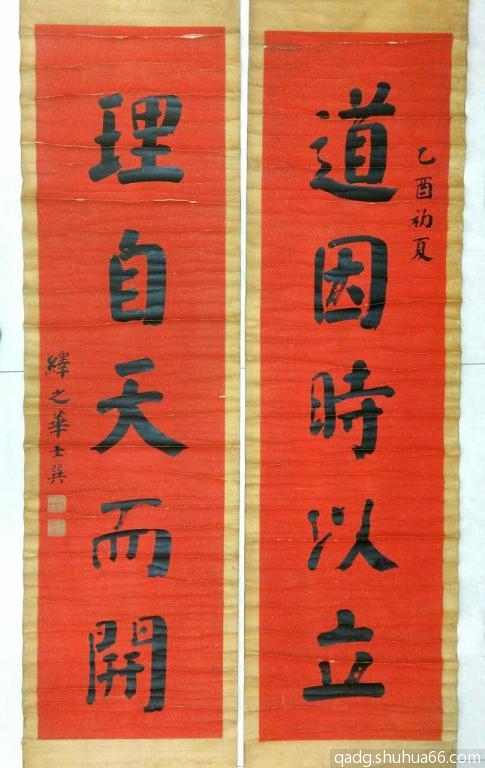 乙酉初夏
道因時以立
理自天而開
繹之華士巽
qadg.shuhua66.com